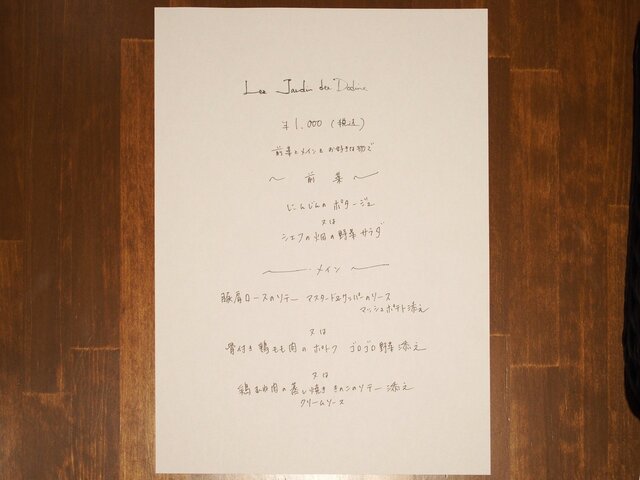 Les Jardin des Dodine
¥1,000 (税込)
前菜とメインをお好きな物で
〜 前菜 〜
じんじんの ポタージュ
又は
シェフの畑の野菜サラダ
メイン
豚肩ロースのソテー マスタードとケッパーのソース
マッシュポテト添え
又は
骨付き鶏もも肉のポトフ ゴロゴロ野菜添え
又は
鶏むね肉の蒸し焼き きのこのソテー添え
クリームソース